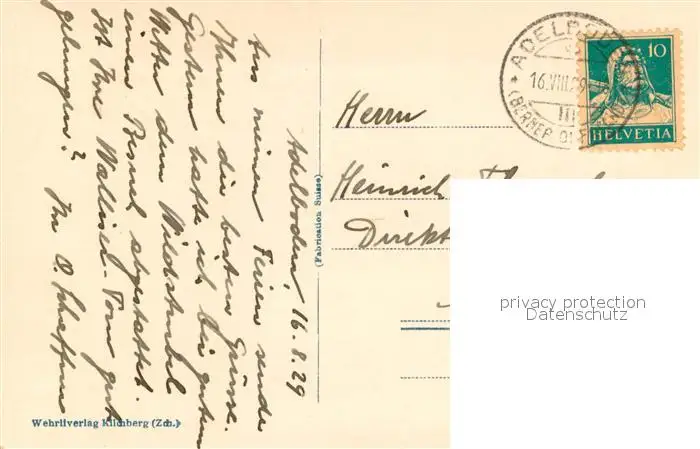 Adelboden, 16.8.29
Aus meinen Ferien sende
Ihnen die besten Grüsse.
Gestern hatte ich bei gutem
Wetter dem Wildstrubel
einen Besuch abgestattet.
Ist Ihre Walliser-Tour gut
gelungen? Ihr O. Schaffner
Wehrliverlag Kilchberg (Zch.)
(Fabrication Suisse)
ADELBODEN
16.VIII.29
(BERNER OBERLAND)
10
HELVETIA
Herrn
Heinrich
Direkt
privacy protection
Datenschutz